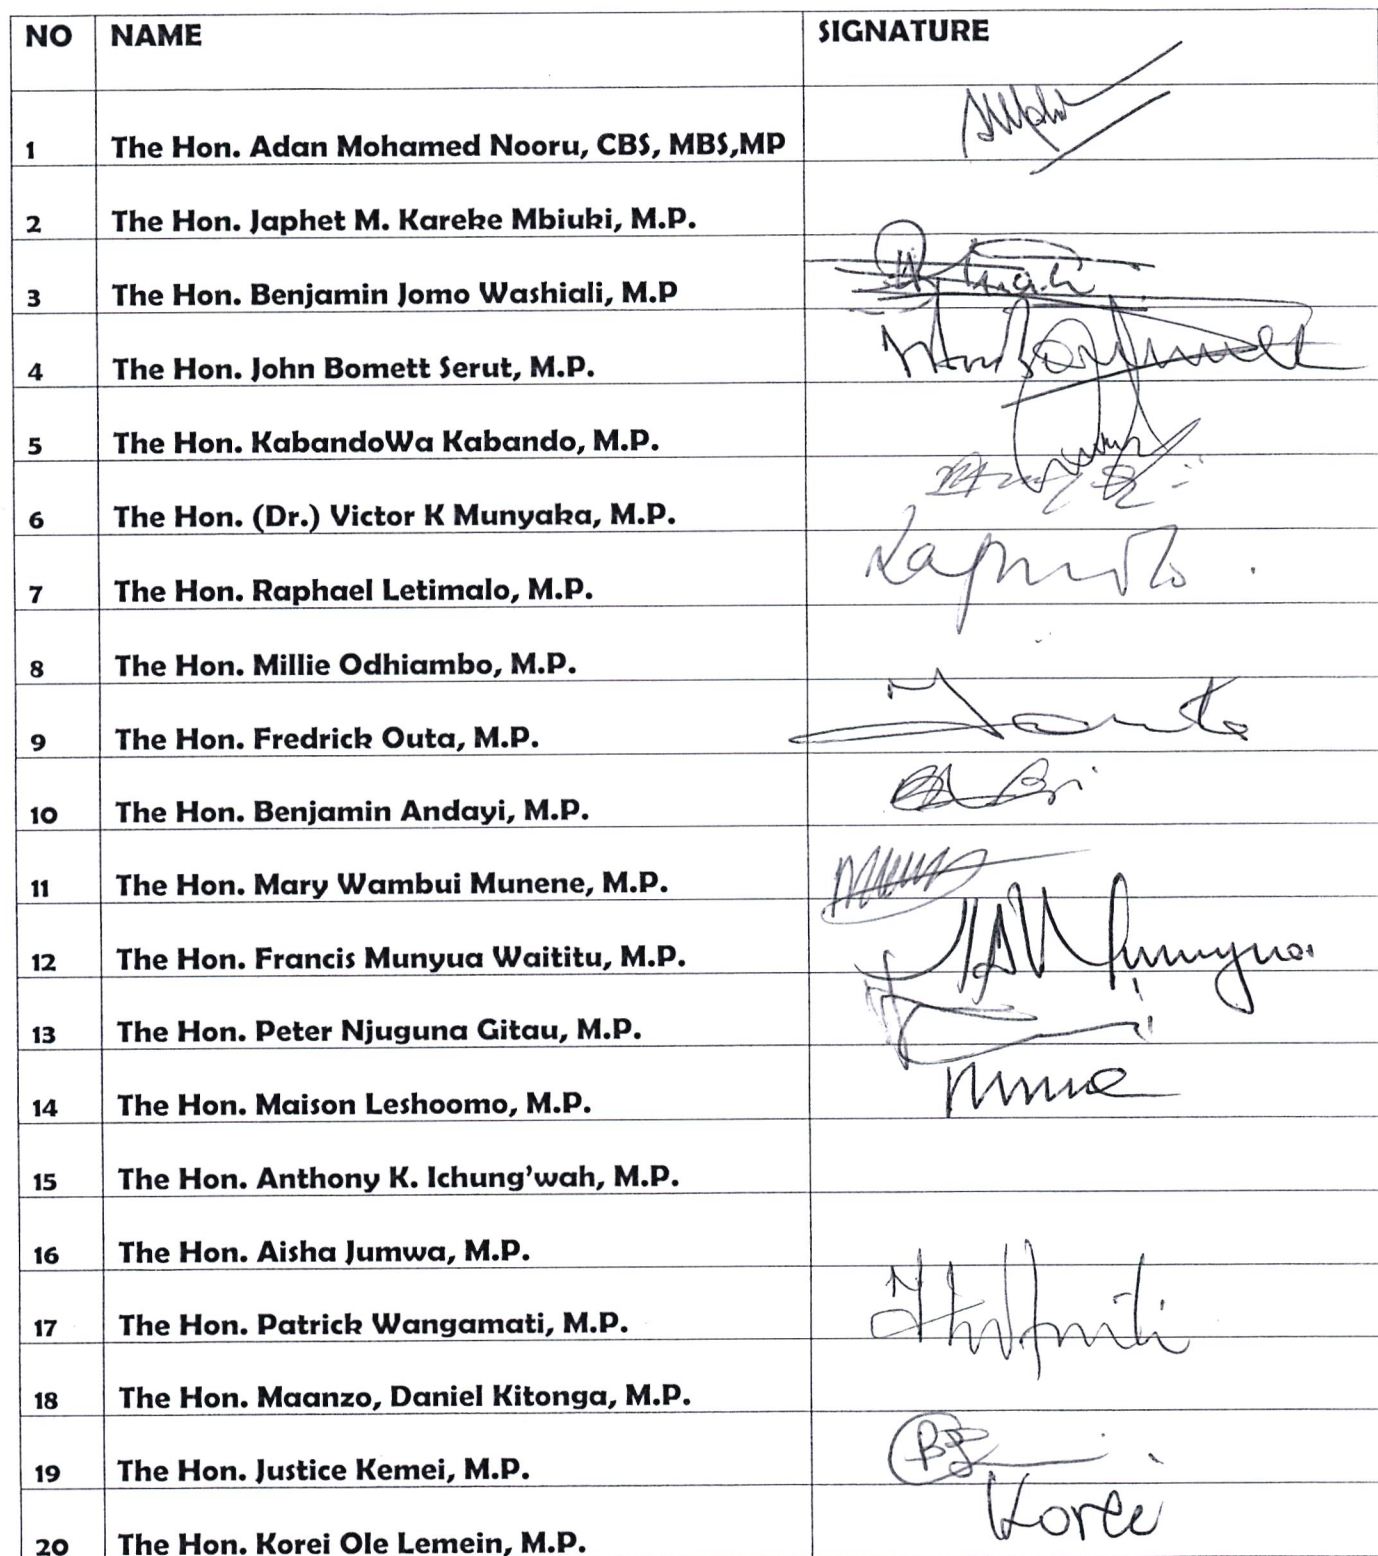 NO NAME SIGNATURE
1 The Hon. Adan Mohamed Nooru, CBS, MBS,MP
2 The Hon. Japhet M. Kareke Mbiuki, M.P.
3 The Hon. Benjamin Jomo Washiali, M.P
4 The Hon. John Bomett Serut, M.P.
5 The Hon. KabandoWa Kabando, M.P.
6 The Hon. (Dr.) Victor K Munyaka, M.P.
7 The Hon. Raphael Letimalo, M.P.
8 The Hon. Millie Odhiambo, M.P.
9 The Hon. Fredrick Outa, M.P.
10 The Hon. Benjamin Andayi, M.P.
11 The Hon. Mary Wambui Munene, M.P.
12 The Hon. Francis Munyua Waititu, M.P.
13 The Hon. Peter Njuguna Gitau, M.P.
14 The Hon. Maison Leshoomo, M.P.
15 The Hon. Anthony K. Ichung'wah, M.P.
16 The Hon. Aisha Jumwa, M.P.
17 The Hon. Patrick Wangamati, M.P.
18 The Hon. Maanzo, Daniel Kitonga, M.P.
19 The Hon. Justice Kemei, M.P.
20 The Hon. Korei Ole Lemein, M.P. Korei